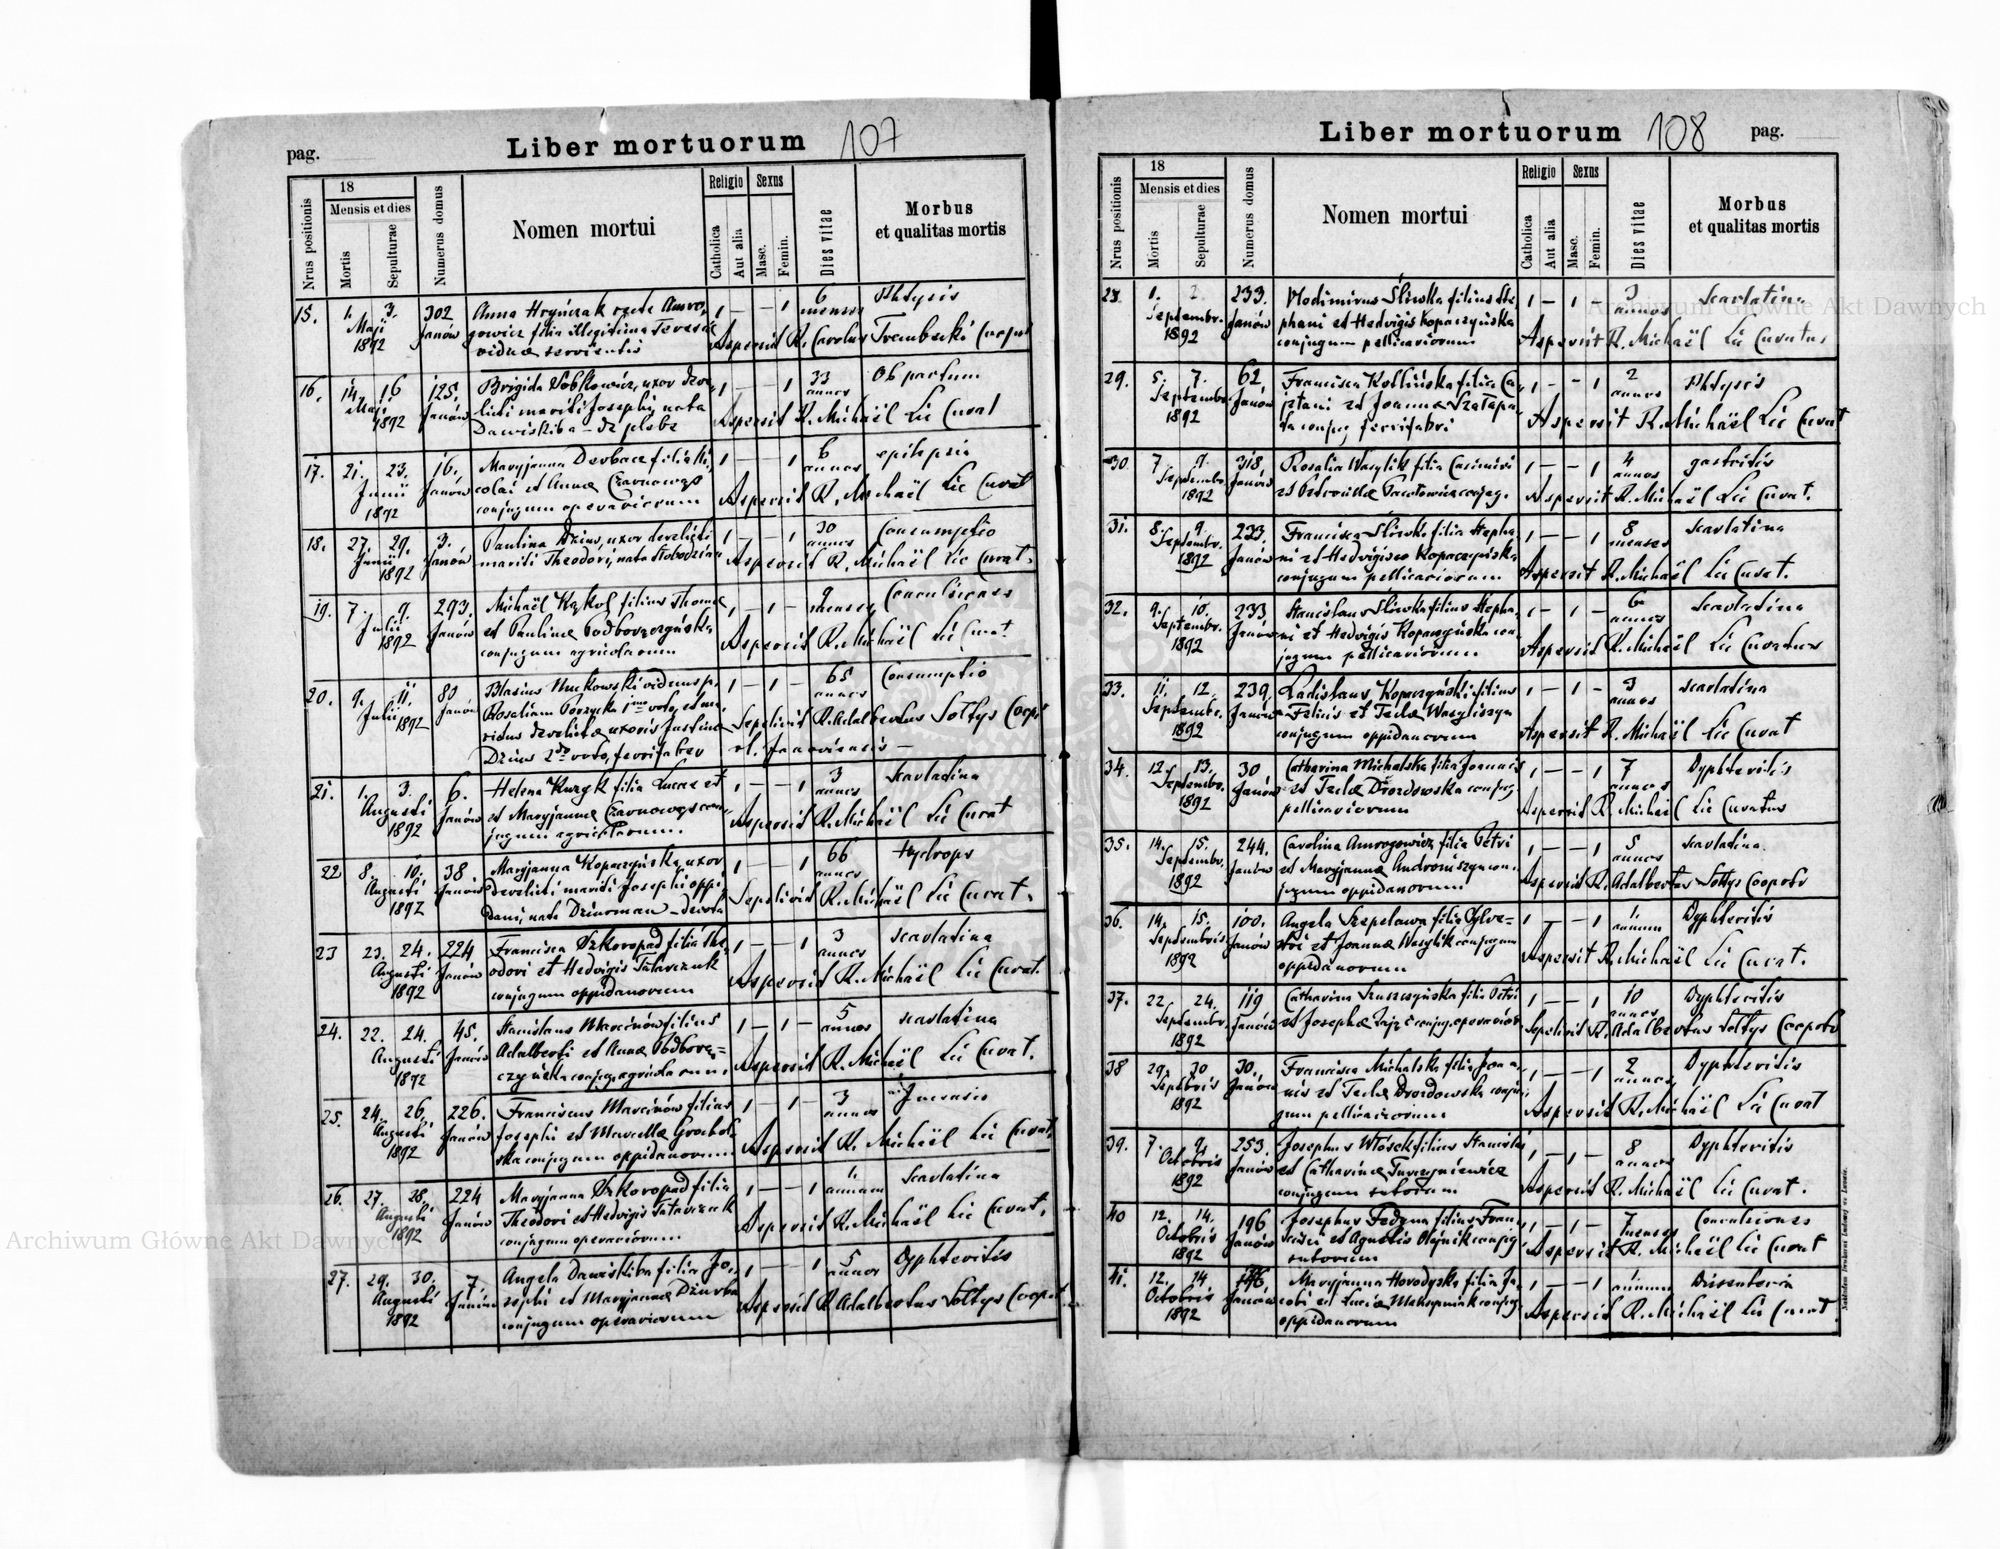 pag.
Liber mortuorum 107
Nrus positionis
18
Mensis et dies
Mortis
Sepulturae
Numerus domus
Nomen mortui
Religio
Catholica
Aut alia
Sexus
Masc.
Femin.
Dies vitae
Morbus
et qualitas mortis
15. 1. 3. 302 Anna Hryńczak recte Amro- 1 — — 1 6 Phtysis
Maji Janów gowicz filia illegitima Teresiæ menses
1892 viduæ servientis Aspersit R. Carolus Trembecki
16. 14. 16 125. Brigida Sobkowicz, uxor dere- 1 — — 1 33 Ob partum
Maji Janów licti mariti Josephi, nata annos
1892 Dawiskiba — de plebe Aspersit R. Michaël Lic Curat
17. 21. 23. 16. Maryjanna Derbacz filia Ni- 1 — — 1 6 epilepsis
Junii Janów colai et Annæ Czarnowąs annos
1892 conjugum operariorum Aspersit R. Michaël Lic Curat
18. 27. 29. 3. Paulina Dzius, uxor derelicti 1 — — 1 30 Consumptio
Junii Janów mariti Theodori, nata annos
1892 Aspersit R. Michaël Lic Curat.
19. 7. 9. 293. Michaël Kąkol filius Thomæ 1 — 1 — 9 Convulsiones
Julii Janów et Paulinæ Podborączyńska menses
1892 conjugum agricolarum Aspersit R. Michaël Lic Curat
20. 9. 11. 80 Blasius Muckowski viduus p. 1 — 1 — 65 Consumptio
Julii 1892 Janów Rosaliam Porzycka 1mo voto, et ma- annos
ritus derelictæ uxoris Justinæ Sepelivit R. Adalbertus Sołtys Coop.
Dzius 2do voto, ferrifaber r. l. Janoviensis —
21. 1. 3. 6. Helena Kuzyk filia Lucæ et 1 — — 1 3 Scarlatina
Augusti Janów et Maryjannæ Czarnowąs con- annos
1892 jugum agricolarum. Aspersit R. Michaël Lic Curat
22 8. 10. 38 Maryjanna Kopaczyńska, uxor 1 — — 1 66 Hydrops
Augusti Janów derelicti mariti Josephi oppi- annos
1892 dani, nata Dziurman — Sepelivit R. Michaël Lic Curat.
23 23. 24. 224 Francisca Szkoropad filia The- 1 — — 1 3 scarlatina
Augusti Janów odori et Hedvigis Tatarczuk annos
1892 conjugum oppidanorum Aspersit R. Michaël Lic Curat.
24. 22. 24. 45. Stanislaus Marcinów filius 1 — 1 — 5 scarlatina
Augusti Janów Adalberti et Annæ Podborą= annos
1892 czyńska conjug. agricolarum. Aspersit R. Michaël Lic Curat.
25. 24. 26. 226. Franciscus Marcinów filius 1 — 1 — 3
Augusti Janów Josephi et Marcellæ Grochol- annos
1892 ska conjugum oppidanorum. Aspersit R. Michaël Lic Curat.
26. 27. 28. 224 Maryjanna Szkoropad filia 1 — — 1 1. Scarlatina
Augusti Janów Theodori et Hedvigis Tatarczuk annum
1892 conjugum operariorum. Aspersit R. Michaël Lic Curat.
27. 29. 30. 7. Angela Dawiskiba filia Jo- 1 — — 1 5 Dyphteritis
Augusti Janów sephi et Maryjannæ Dziurba annos
1892 conjugum operariorum Aspersit R. Adalbertus Sołtys Coopt.
Liber mortuorum 108 pag.
Nrus positionis
18
Mensis et dies
Mortis
Sepulturae
Numerus domus
Nomen mortui
Religio
Catholica
Aut alia
Sexus
Masc.
Femin.
Dies vitae
Morbus
et qualitas mortis
28. 1. 2. 233. Vlodimirus Śliwka filius Ste- 1 — 1 — 3 Scarlatina
Septembr. Janów phani et Hedvigis Kopaczyńska annos
1892 conjugum pellicariorum Aspersit R. Michaël Lic Curatus
29. 5. 7. 62. Francisca Kotlińska filia Ca- 1 — — 1 2 Phtysis
Septembr. Janów jetani et Joannæ Szałapa- annos
1892 ta conjug. ferrifabri Aspersit R. Michaël Lic Curat
30. 7. 9. 318 Rosalia Wasylik filia Casimiri 1 — — 1 4 gastritis
Septembr. Janów et Petronillæ Pawłowicz conjug. annos
1892 Aspersit R. Michaël Lic Curat.
31. 8. 9. 233. Francisca Śliwka filia Stepha- 1 — — 1 8 Scarlatina
Septembr. Janów ni et Hedvigis Kopaczyńska menses
1892 conjugum pellicariorum Aspersit R. Michaël Lic Curat.
32. 9. 10. 233 Stanislaus Śliwka filius Stepha- 1 — 1 — 6 Scarlatina
Septembr. Janów ni et Hedvigis Kopaczyńska con- annos
1892 jugum pellicariorum Aspersit R. Michaël Lic Curatus
33. 11. 12. 239. Ladislaus Kopaczyński filius 1 — 1 — 3 scarlatina
Septembr. Janów Felicis et Teclæ Wasyliszyn annos
1892 conjugum oppidanorum Aspersit R. Michaël Lic Curat
34. 12. 13. 30 Catharina Michalska filia Joannis 1 — — 1 7 Dyphteritis
Septembr. Janów et Teclæ Drozdowska conjug. annos
1892 pellicariorum Aspersit R. Michaël Lic Curatus
35. 14. 15. 244. Carolina Amrogowicz filia Petri 1 — — 1 5 scarlatina
Septembr. Janów et Maryjannæ Androniszyn con- annos
1892 jugum oppidanorum Aspersit R. Adalbertus Sołtys Coopt.
36. 14. 15. 100. Angela Szepelawa filia Sylve= 1 — — 1 1. Dyphteritis
Septembris Janów stri et Joannæ Wasylik conjugum annum
1892 oppidanorum Aspersit R. Michaël Lic Curat.
37. 22 24. 119 Catharina Szuszczyńska filia Petri 1 — — 1 10 Dyphteritis
Septembr. Janów et Josephæ Zając conjug. operarior. annos
1892 Sepelivit R. Adalbertus Sołtys Coopt.
38 29. 30 30. Francisca Michalska filia Joan- 1 — — 1 2 Dyphteritis
Septbris Janów nis et Teclæ Drozdowska conju- annos
1892 gum pellicariorum Aspersit R. Michaël Lic Curat
39. 7. 9. 253. Josephus Włosek filius Stanislai 1 — 1 — 8 Dyphteritis
Octobris Janów et Catharinæ Turczyniewicz annos
1892 conjugum sutorum Aspersit R. Michaël Lic Curat.
40 12. 14. 196 Josephus Fedyna filius Fran- 1 — 1 — 7 Convulsiones
Octobris Janów cisci et Agnetis Olejnik conjug. menses
1892 sutorum Aspersit R. Michaël Lic Curat
41. 12. 14. Maryjanna Horodyska filia Ja- 1 — — 1 1 Dissenteria
Octobris Janów cobi et Luciæ Maksymiak conjug. annum
1892 oppidanorum Aspersit R. Michaël Lic Curat.
Archiwum Główne Akt Dawnych
Archiwum Główne Akt Dawnych